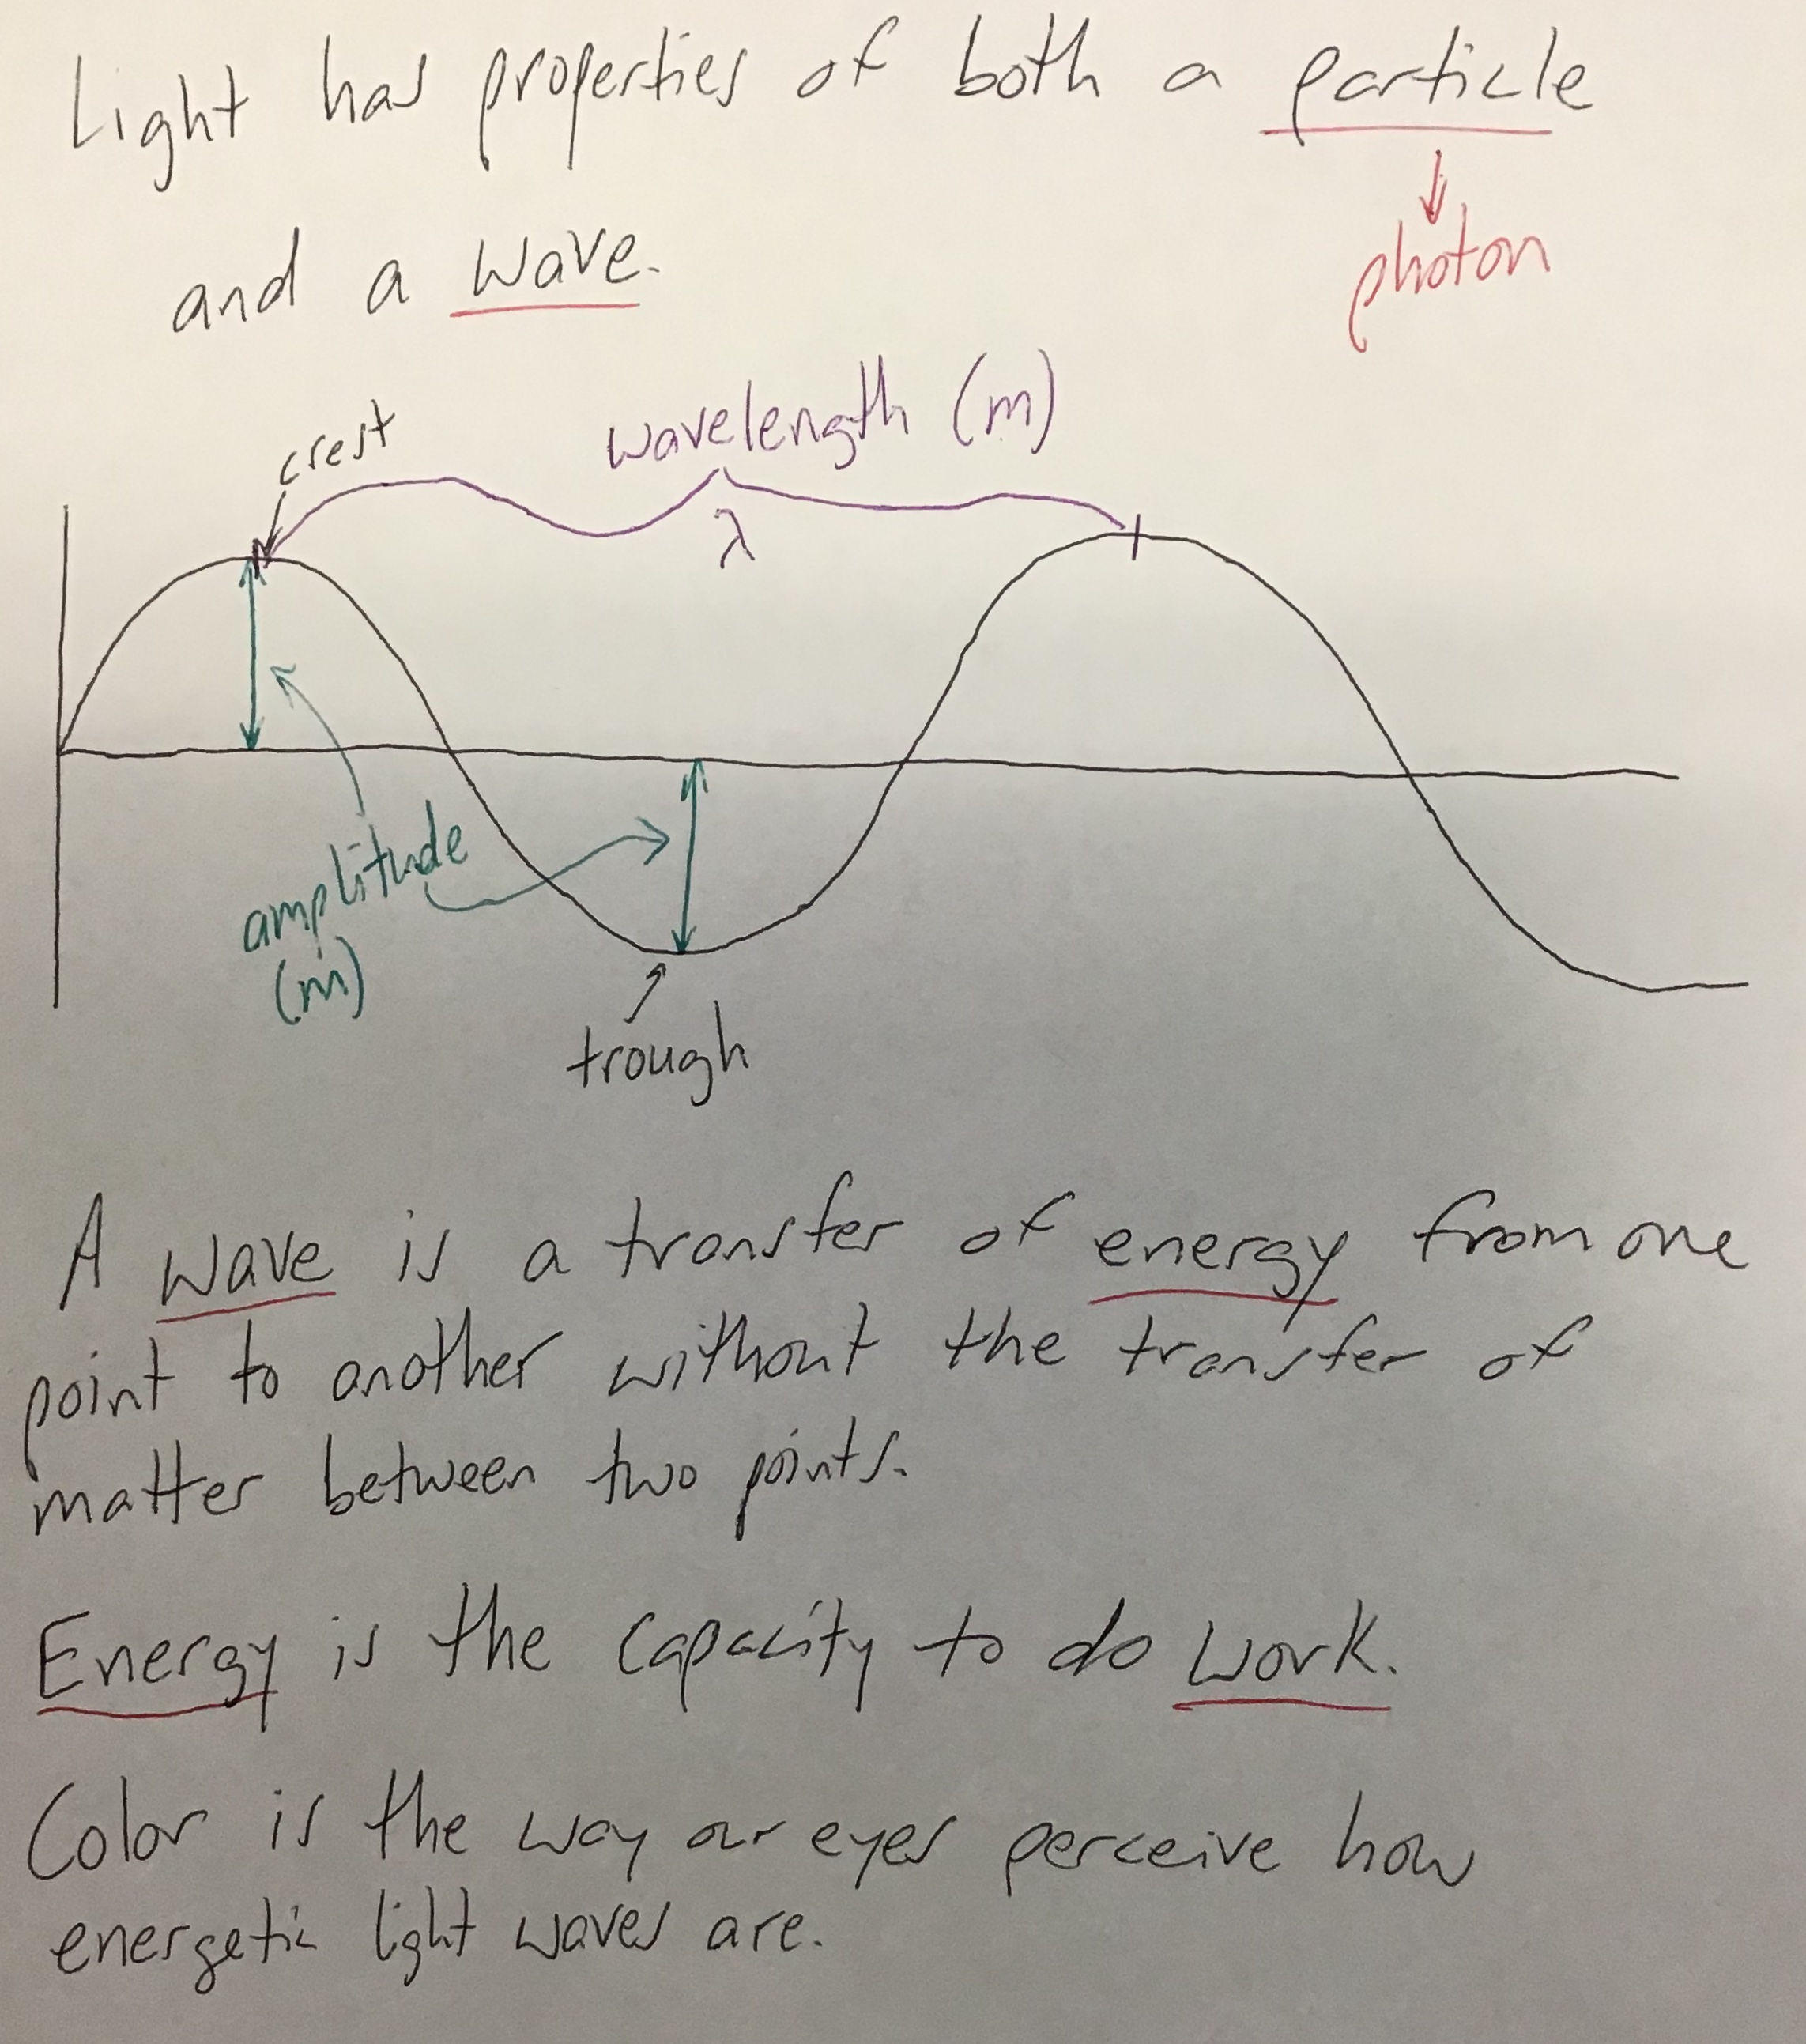 Light has properties of both a particle
photon
and a wave.
wavelength (m)
crest
λ
amplitude
(m)
trough
A wave is a transfer of energy from one
point to another without the transfer of
matter between two points.
Energy is the capacity to do work.
Color is the way our eyes perceive how
energetic light waves are.